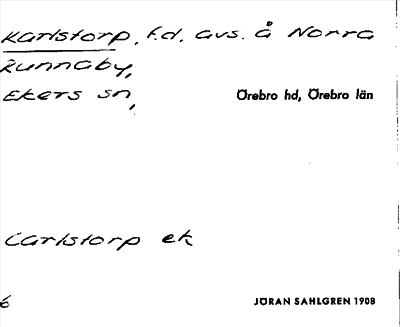 Karlstorp, f.d. avs. å Norra
Runnaby,
Ekers sn,
Örebro hd, Örebro län
Carlstorp ek
6
JÖRAN SAHLGREN 1908